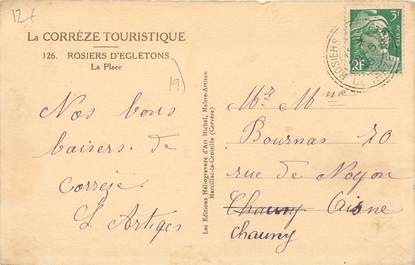 12€
La CORRÈZE TOURISTIQUE
126. ROSIERS D'EGLETONS
La Place
Nos bons
baisers de
Corrèze
L'Artiges
Les Editions Héliogravure d'Art Michel, Maître-Artisan
Marcillac-la-Croisille (Corrèze)
ROSIERS
3F
RF
Mr Mme
Bournas 70
rue de Noyon
Chauny Aisne
Chauny